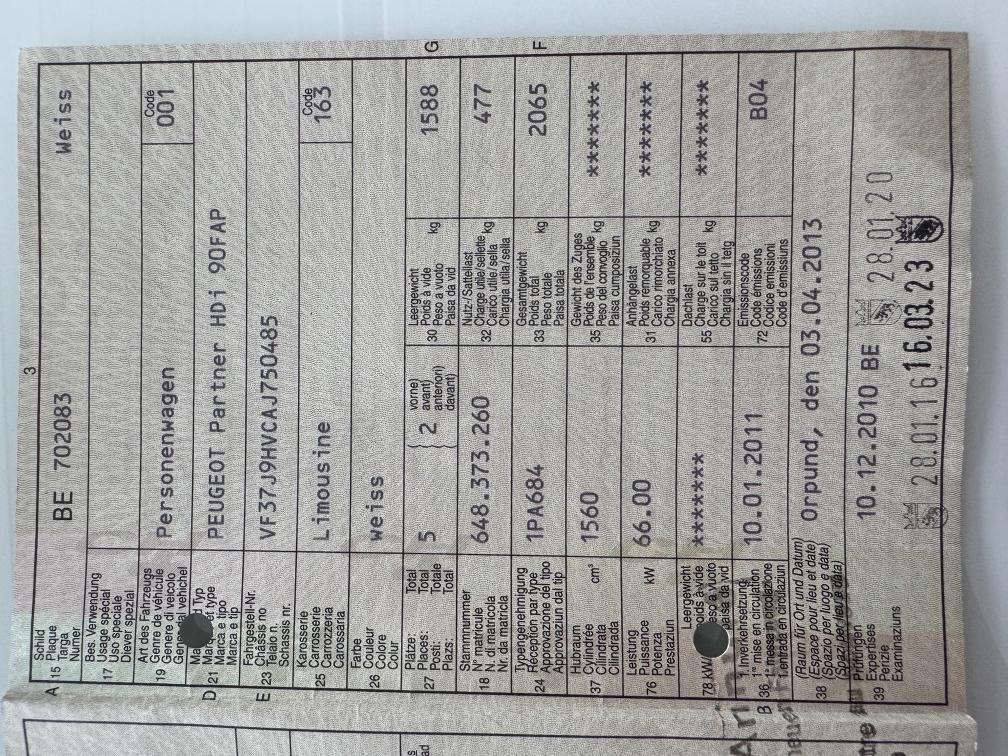 3
A 15 Schild
Plaque
Targa
Numer
BE 702083
Weiss
17 Bes. Verwendung
Usage spécial
Uso speciale
Diever spezial
19 Art des Fahrzeugs
Genre de véhicule
Genere di veicolo
Personenwagen
Code
001
D 21
Typ
et type
Marca e tipo
Marca e tip
PEUGEOT Partner HDi 90FAP
E 23 Fahrgestell-Nr.
Châssis no
Telaio n.
Schassis nr.
VF37J9HVCAJ750485
25 Karosserie
Carrosserie
Carrozzeria
Carossaria
Limousine
Code
163
26 Farbe
Couleur
Colore
Colur
weiss
27 Plätze: Total
Places: Total
Posti: Totale
Plazs: Total
5
2
vorne)
avant)
anteriori)
davant)
30 Leergewicht
Poids à vide
Peso a vuoto
Paisa da vid
kg
1588
G
18 Stammnummer
N° matricule
N. di matricola
Nr. da matricla
648.373.260
32 Nutz-/Sattellast
Charge utile/sellette
Carico utile/sella
Chargia utila/sella
kg
477
24 Typengenehmigung
Réception par type
Approvazione del tipo
Approvaziun dal tip
1PA684
33 Gesamtgewicht
Poids total
Peso totale
Paisa totala
kg
2065
F
37 Hubraum
Cylindrée
Cilindrata
Cilindrada
cm³
1560
35 Gewicht des Zuges
Poids de l'ensemble
Peso del convoglio
Paisa cumposiziun
kg
*******
76 Leistung
Puissance
Potenza
Prestaziun
kW
66.00
31 Anhängelast
Poids remorquable
Carico rimorchiato
Chargia annexa
kg
*******
78 kW/
Leergewicht
poids à vide
peso a vuoto
paisa da vid
******
55 Dachlast
Charge sur le toit
Carico sul tetto
Chargia sin il tetg
kg
*******
B 36 1. Inverkehrsetzung
1re mise en circulation
1a messa in circolazione
1. entrada en circulaziun
10.01.2011
72 Emissionscode
Code émissions
Codice emissioni
Code d'emissiuns
B04
38 (Raum für Ort und Datum)
(Espace pour lieu et date)
(Spazio per luogo e data)
(Spazi per lieu e data)
Orpund, den 03.04.2013
39 Prüfungen
Expertises
Perizie
Examinaziuns
10.12.2010 BE
28.01.20
28.01.16
16.03.23